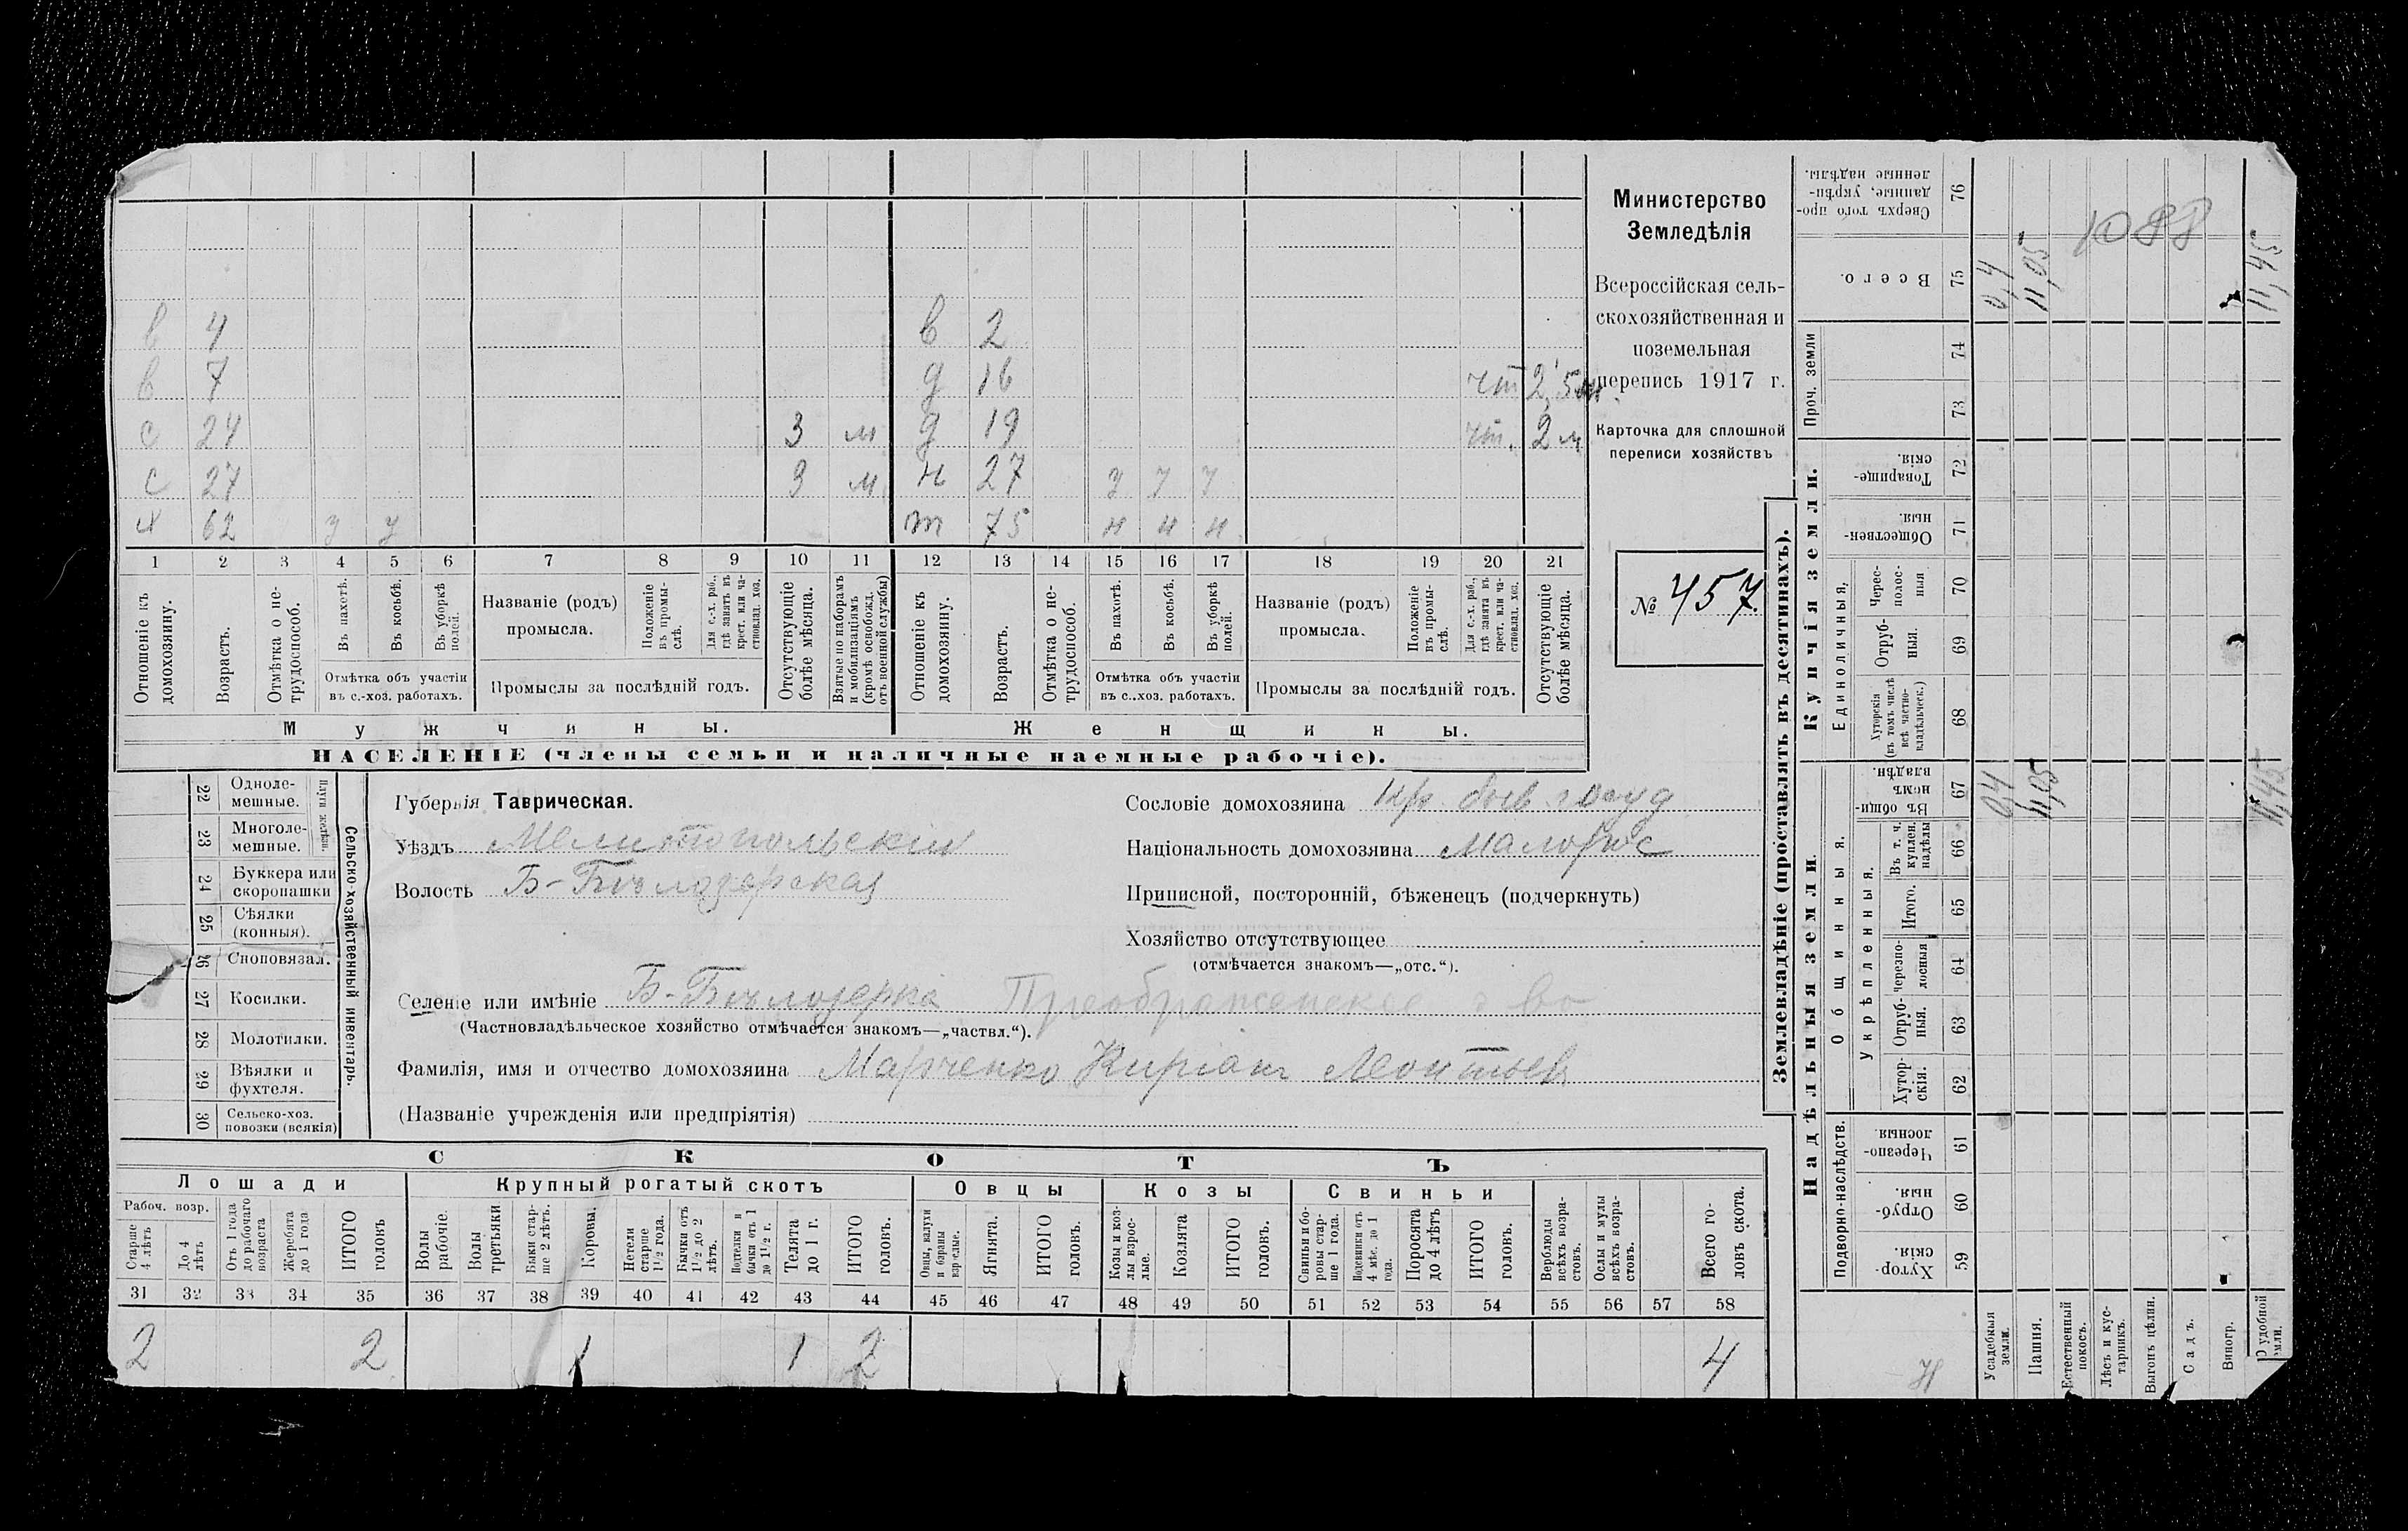 в 4 в 2
в 7 д 16 чт 2,5 м
с 24 3 м д 19 чт. 2 м
с 27 3 м н 27 у у у
х 62 у у т 75 н н н
1 2 3 4 5 6 7 8 9 10 11 12 13 14 15 16 17 18 19 20 21
Отношеніе къ домохозяину.
Возрастъ.
Отмѣтка о нетрудоспособ.
Въ пахотѣ.
Въ косьбѣ.
Въ уборкѣ полей.
Отмѣтка объ участіи
въ с.-хоз. работахъ.
Названіе (родъ)
промысла.
Положеніе въ промыслѣ.
Для с.-х. раб., гдѣ занятъ въ крест. или частновлад. хоз.
Промыслы за послѣдній годъ.
Отсутствующіе болѣе мѣсяца.
Взятые по наборамъ и мобилизаціямъ (кромѣ освобожд. отъ военной службы)
Отношеніе къ домохозяину.
Возрастъ.
Отмѣтка о нетрудоспособ.
Въ пахотѣ.
Въ косьбѣ.
Въ уборкѣ полей.
Отмѣтка объ участіи
въ с..хоз. работахъ.
Названіе (родъ)
промысла.
Положеніе въ промыслѣ.
Для с.-х. раб., гдѣ занята въ крест. или частновлад. хоз.
Промыслы за послѣдній годъ.
Отсутствующіе болѣе мѣсяца.
Мужчины. Женщины.
НАСЕЛЕНІЕ (члены семьи и наличные наемные рабочіе).
Министерство
Земледѣлія
Всероссійская сель-
скохозяйственная и
поземельная
перепись 1917 г.
Карточка для сплошной
переписи хозяйствъ
№ 457.
22 Одноле-
мешные.
23 Многоле-
мешные.
Плуги желѣзн.
24 Буккера или
скоропашки
25 Сѣялки
(конныя).
26 Сноповязал.
27 Косилки.
28 Молотилки.
29 Вѣялки и
фухтеля.
30 Сельско-хоз.
повозки (всякія)
Сельско-хозяйственный инвентарь.
Губернія Таврическая.
Уѣздъ Мелитопольскій
Волость Б-Бѣлозерская
Сословіе домохозяина кр. быв. госуд
Національность домохозяина малорос
Приписной, посторонній, бѣженецъ (подчеркнуть)
Хозяйство отсутствующее
(отмѣчается знакомъ—„отс.“).
Селеніе или имѣніе Б-Бѣлозерка Преображенское
(Частновладѣльческое хозяйство отмѣчается знакомъ—„частвл.“).
Фамилія, имя и отчество домохозяина Марченко Киріан Леонтьев
(Названіе учрежденія или предпріятія)
СКОТЪ
Лошади Крупный рогатый скотъ Овцы Козы Свиньи
Рабоч. возр.
Старше 4 лѣтъ
До 4 лѣтъ
Отъ 1 года до рабочаго возраста
Жеребята до 1 года
ИТОГО головъ
Волы рабочіе.
Волы третьяки
Быки старше 2 лѣтъ.
Коровы.
Нетели старше 1½ года.
Бычки отъ 1½ до 2 лѣтъ.
Подтелки и бычки отъ 1 до 1½ г.
Телята до 1 г.
ИТОГО головъ.
Овцы, валухи и бараны взрослые.
Ягнята.
ИТОГО головъ.
Козы и козлы взрослые.
Козлята
ИТОГО головъ.
Свиньи и боровы старше 1 года.
Подсвинки отъ 4 мѣс. до 1 года.
Поросята до 4 лѣтъ
ИТОГО головъ.
Верблюды всѣхъ возрастовъ.
Ослы и мулы всѣхъ возрастовъ.
Всего головъ скота.
31 32 33 34 35 36 37 38 39 40 41 42 43 44 45 46 47 48 49 50 51 52 53 54 55 56 57 58
2 2 1 1 2 4
Землевладѣніе (проставлять въ десятинахъ).
Надѣльныя земли. Купчія земли. Проч. земли
Подворно-наслѣдств.
Общинныя.
Укрѣпленныя.
Единоличныя.
59 Хуторскія.
60 Отрубныя.
61 Черезполосныя.
62 Хуторскія.
63 Отрубныя.
64 Черезполосныя
65 Итого.
66 Въ т. ч. куплен. надѣлы
67 Въ общинномъ владѣн.
68 Хуторскія (въ томъ числѣ всѣ частновладѣльческ.)
69 Отрубныя.
70 Чересполосныя
71 Общественныя.
72 Товарищескія.
73
74
75 Всего.
76 Сверхъ того проданные, укрѣпленные надѣлы.
Усадебныя земли. 0,4 0,4
Пашня. 11,05 11,05
Естественный покосъ.
Лѣсъ и кустарникъ.
Выгонъ цѣлин.
Садъ.
Виногр.
О удобной земли. 11,45 11,45
1088
Н